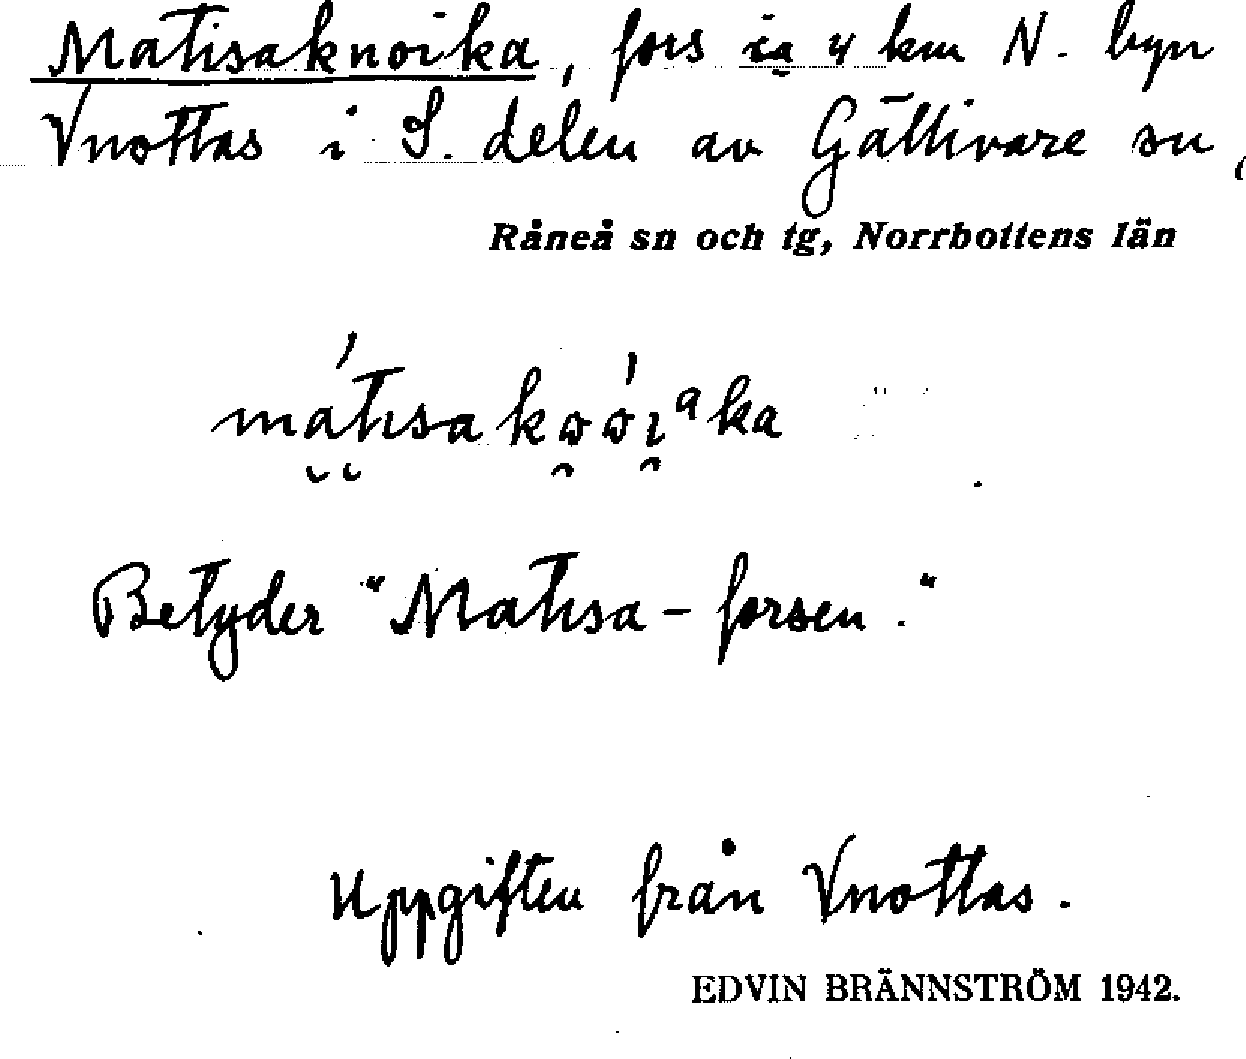 Matisaknoika, fors ca 4 km N. byn
Vuottas i S. delen av Gällivare sn,
Råneå sn och tg, Norrbottens län
Betyder "Matisa-forsen."
Uppgiften från Vuottas.
EDVIN BRÄNNSTRÖM 1942.